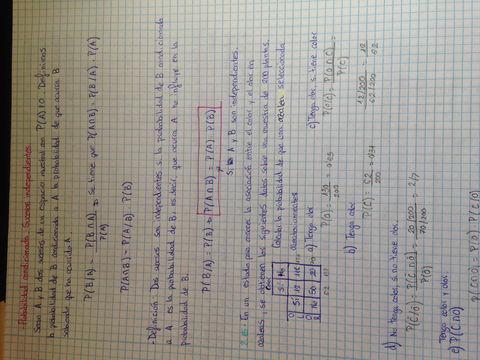 Probabilidad condicionada. Sucesos independientes
Sean A y B dos sucesos de un espacio muestral con P(A)≠0. Definimos
la probabilidad de B condicionada a A la probabilidad de que ocurra B
sabiendo que ha ocurrido A.
P(B/A) = P(B∩A) / P(A) ⇒ Se tiene que P(A∩B) = P(B/A) · P(A)
P(A∩B) = P(A/B) · P(B)
Definición: Dos sucesos son independientes si la probabilidad de B condicionada
a A es la probabilidad de B, es decir, que ocurra A no influye en la
probabilidad de B.
P(B/A) = P(B) P(A∩B) = P(A) · P(B)
si A y B son independientes.
En un estudio para conocer la asociación entre el color y el olor en
azaleas, se obtienen los siguientes datos sobre una muestra de 200 plantas.
Calcular la probabilidad de que una azalea seleccionada
aleatoriamente
Si No
Si 12 118
No 50 20
a) Tenga olor
P(O) = 130 / 200 = 0'65
b) Tenga color
P(C) = 62 / 200 = 0'31
c) Tenga olor, si tiene color
P(O/C) = P(O∩C) / P(C) =
12/200 / 62/200 = 12 / 62
d) No tenga color, si no tiene olor
20/200 / 70/200 = 2/7
e) Tenga color y olor
P(C∩O)